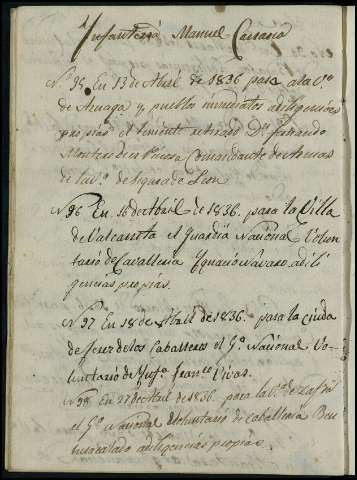 Infanteria Manuel Casana
Nº 95. En 13 de Abril de 1836 pasa a la Vª.
de Azuaga y pueblos inmediatos a diligencias
propias el teniente retirado Dn. Fernando
Montero de Comandante de Armas
de la Vª. de Segura de Leon
Nº 96 En 16 de Abril de 1836. para la Villa
de Valcarrota el Guardia Nacional Volun
tario de Cavalleria Ygnacio Navaro. a dili
gencias propias.
Nº 97 En 18 de Abril de 1836. para la ciuda
de Jerez de los Caballeros el Gª. Nacional Vo-
luntario de Ynfª. Franco. Vivas.
Nº 98. En 27 de Abril de 1836. para la Vª. de Zafra
el Gª. Nacional Voluntario de Caballeria Ben
a diligencias propias.